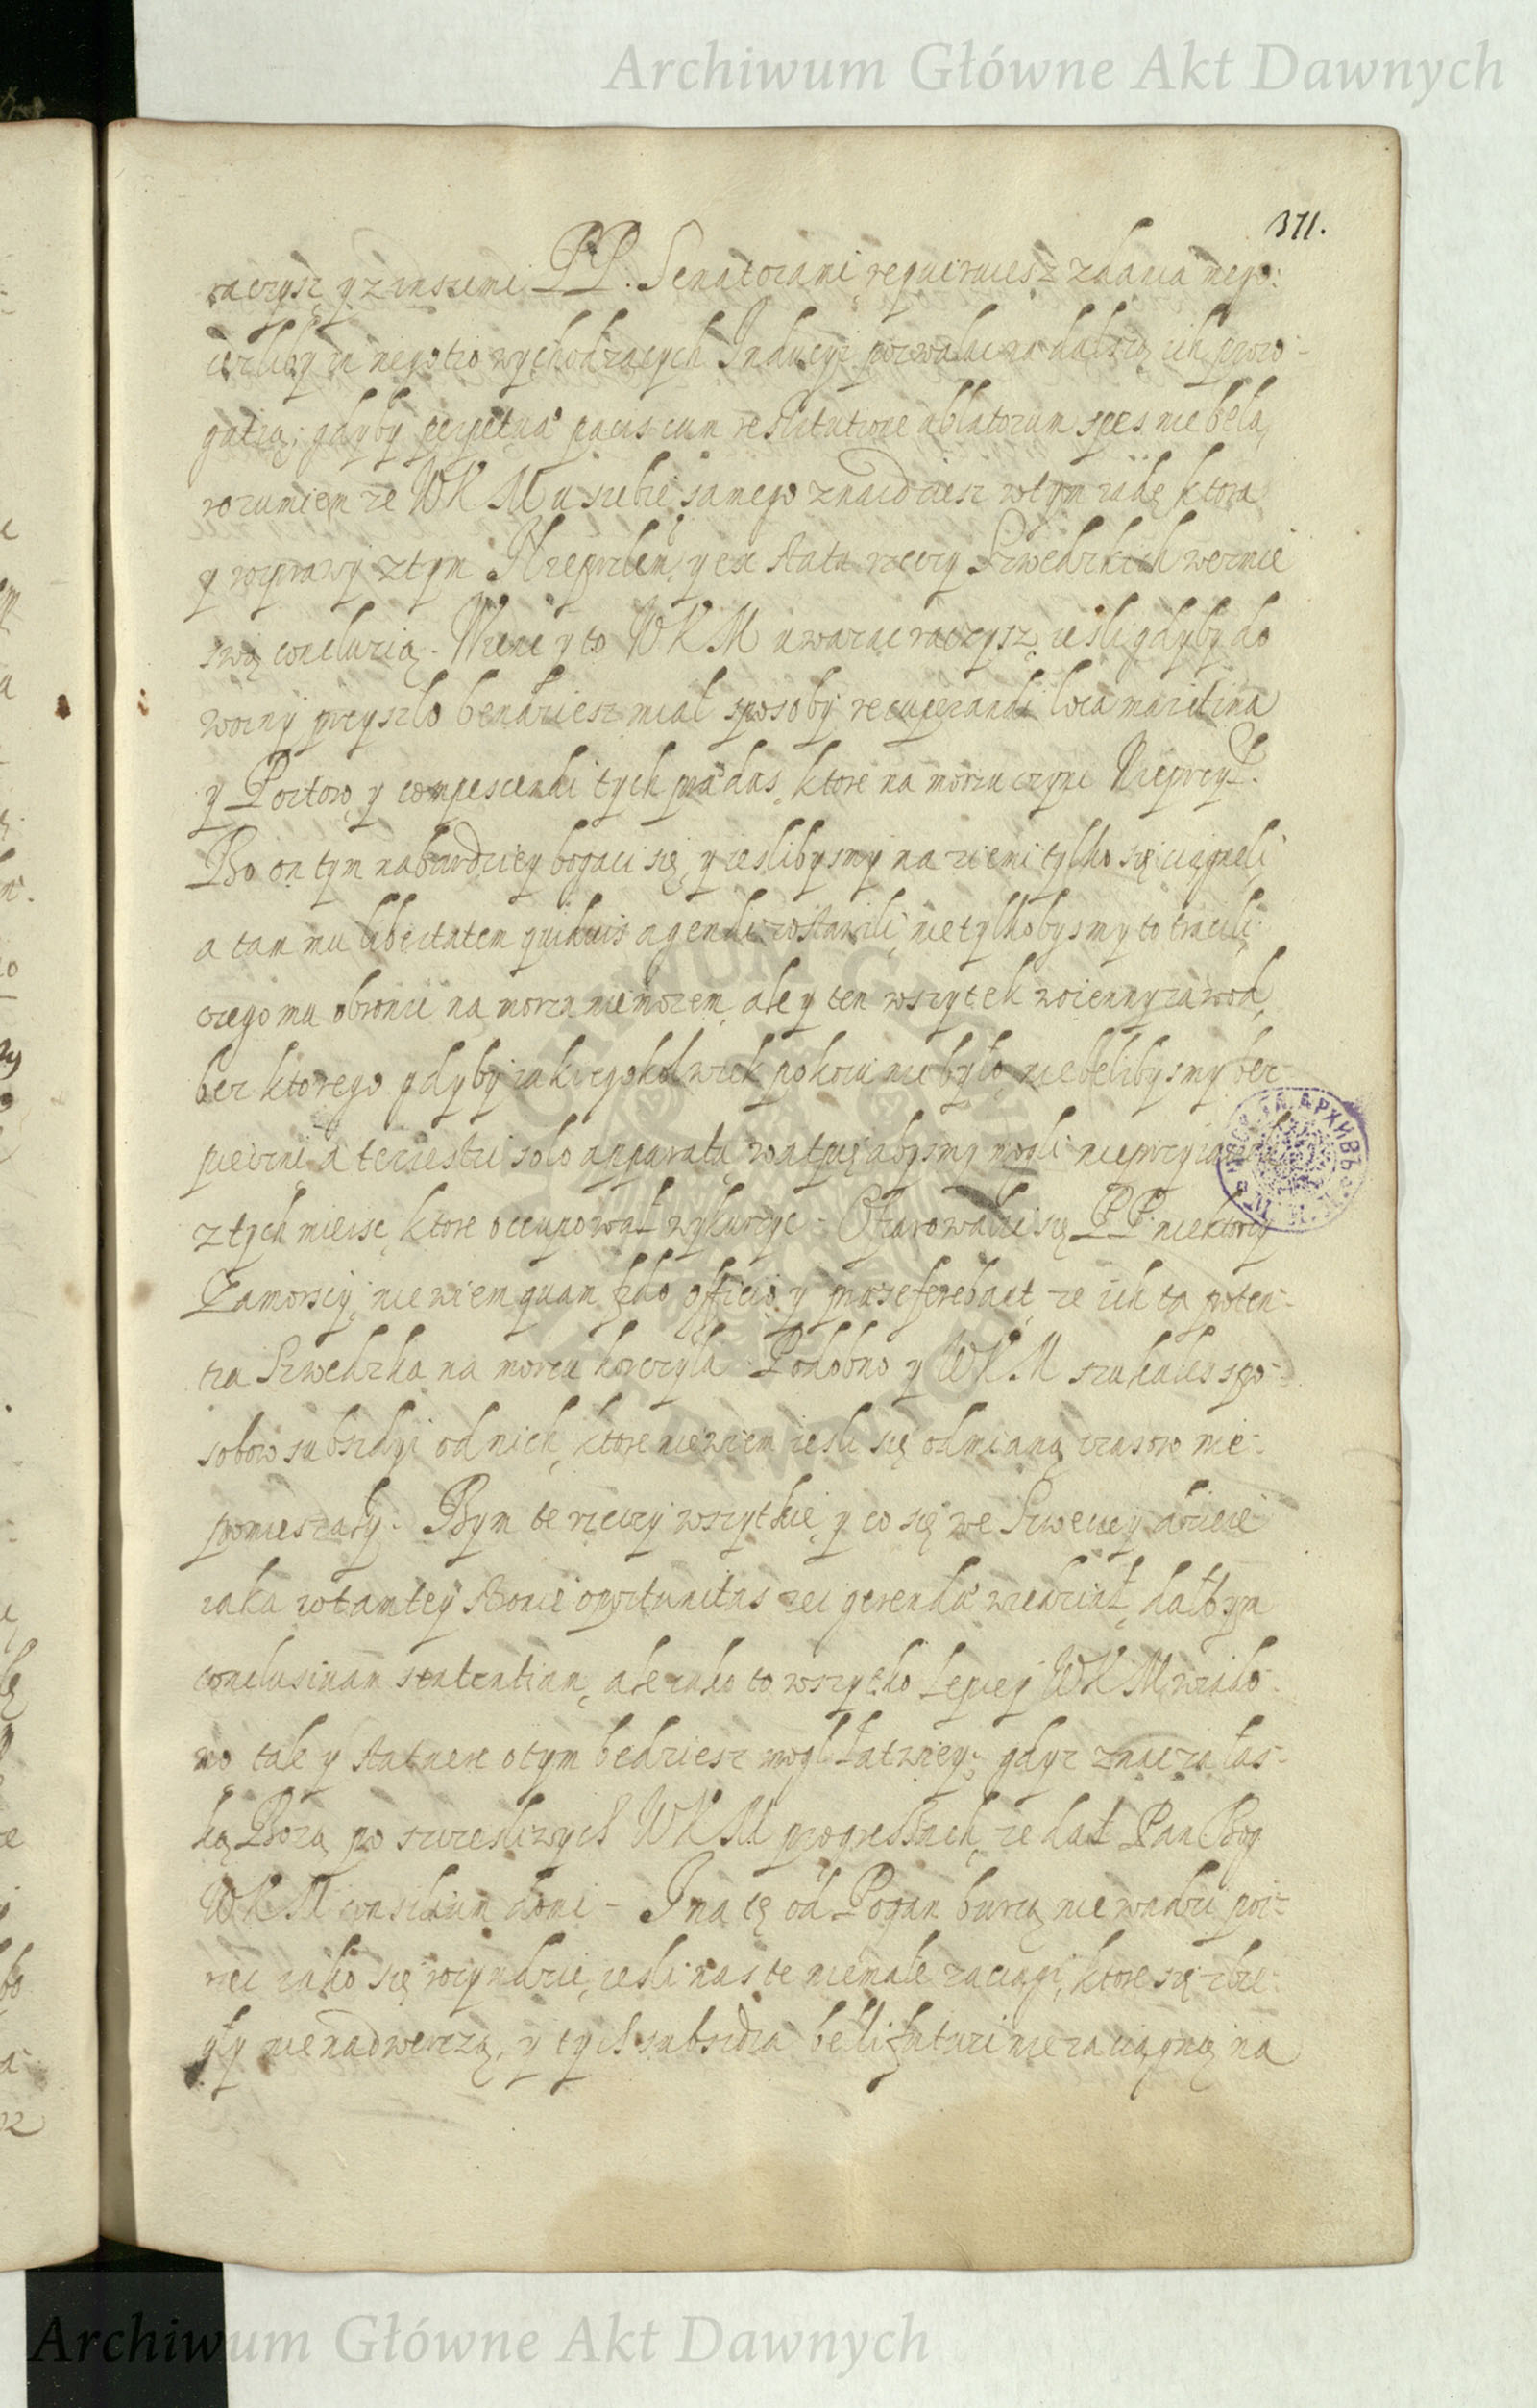 Archiwum Główne Akt Dawnych
371.
raczysz y z inszemi PP. Senatorami requiruiesz zdania mego:
ieżliby in negotio wychodzących Inducyi pozwalać na dalszą ich proro-
gatią; gdyby perpetuae pacis cum restitutione ablatorum spes nie beła,
rozumiem ze WKM u siebie samego znaidziesz w tym radę ktora
y rozprawy z tym Nieprzlem, y ex statu rzeczy Szwedzkich weźmie
swą conclusią. Wszak y to WKM uwazac raczysz, iesli gdyby do
woiny przyszło bendziesz miał sposoby recuperandi loca maritima
y Portow, y compescendi tych praedas, ktore na morzu czyni Nieprzyl.
Bo on tym nabardziey bogaci się, y ieslibysmy na ziemi tylko się ciągneli
a tam mu libertatem quidvis agendi zostawili, nie tylkobysmy to tracili
czego mu obronić na morzu niemozem, ale y ten wszytek woienny zawod,
bez ktorego gdyby iakiegokolwiek pokoiu nie było, nie belibysmy bez-
pieczni, a terrestri solo apparatu wątpię abysmy mogli nieprzyiaciela
z tych mieisc, ktore occupował wykurzyć. Ofiarowali się PP. niektorzy
Zamorscy, nie wiem quam fido officio, y prae se ferebant, ze ich ta poten-
tia Szwedzka na morzu korczyła. Podobno y WKM szukałes spo-
sobow subsidyi od nich, ktore nie wiem iesli się odmianą czasow nie-
pomieszały. Bym te rzeczy wszytkie, y co się we Szwecyey dzieie
iaka w tamtey stronie oportunitas rei gerendae wiedział, dałbym
conclusivam sententiam, ale iako to wszytko lepiey WKM wiado-
mo tak y statuere o tym bedziesz mogł łatwiey; gdyz znać za łas-
ką Bozą po szczesliwych WKM progressach, ze dał Pan Bog
WKM consilium domi - I na tę od Pogan burzą nie wadzi poi-
rzec iako się rozyndzie, iesli nas te niemałe zaciągi, ktore się zbie-
gły nie nadwerzą, y tych subsidia belli futuri nie zaciągną na
Archiwum Główne Akt Dawnych